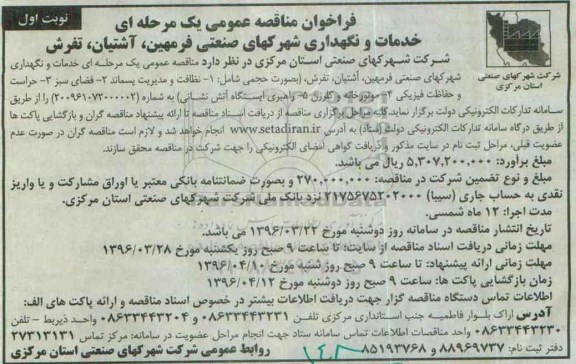 نوبت اول
فراخوان مناقصه عمومی یک مرحله ای
خدمات و نگهداری شهرکهای صنعتی فرمهین، آشتیان، تفرش
شرکت شهرکهای صنعتی
استان مرکزی
شرکت شهرکهای صنعتی استان مرکزی در نظر دارد مناقصه عمومی یک مرحله ای خدمات و نگهداری
شهرکهای صنعتی فرمهین، آشتیان، تفرش، (بصورت حجمی شامل: ۱- نظافت و مدیریت پسماند ۲- فضای سبز ۳- حراست
و حفاظت فیزیکی ۴- موتورخانه و کلرزن ۵- راهبری ایستگاه آتش نشانی) به شماره (۲۰۰۹۶۱۰۷۲۰۰۰۰۰۲) را از طریق
سامانه تدارکات الکترونیکی دولت برگزار نماید. کلیه مراحل برگزاری مناقصه از دریافت اسناد مناقصه تا ارائه پیشنهاد مناقصه گران و بازگشایی پاکت ها
از طریق درگاه سامانه تدارکات الکترونیکی دولت (ستاد) به آدرس www.setadiran.ir انجام خواهد شد و لازم است مناقصه گران در صورت عدم
عضویت قبلی، مراحل ثبت نام در سایت مذکور و دریافت گواهی امضای الکترونیکی را جهت شرکت در مناقصه محقق سازند.
مبلغ برآورد: ۵,۳۰۷,۲۰۰,۰۰۰ ریال می باشد.
مبلغ و نوع تضمین شرکت در مناقصه: ۲۷۰,۰۰۰,۰۰۰ و بصورت ضمانتنامه بانکی معتبر یا اوراق مشارکت و یا واریز
نقدی به حساب جاری (سیبا) ۲۱۷۵۶۷۵۲۰۲۰۰۰ نزد بانک ملی شرکت شهرکهای صنعتی استان مرکزی.
مدت اجرا: ۱۲ ماه شمسی.
تاریخ انتشار مناقصه در سامانه روز دوشنبه مورخ ۱۳۹۶/۰۳/۲۲ می باشد.
مهلت زمانی دریافت اسناد مناقصه از سایت: تا ساعت ۹ صبح روز یکشنبه مورخ ۱۳۹۶/۰۳/۲۸
مهلت زمانی ارائه پیشنهاد: تا ساعت ۹ صبح روز شنبه مورخ ۱۳۹۶/۰۴/۱۰
زمان بازگشایی پاکت ها: ساعت ۹ صبح روز دوشنبه مورخ ۱۳۹۶/۰۴/۱۲
اطلاعات تماس دستگاه مناقصه گزار جهت دریافت اطلاعات بیشتر در خصوص اسناد مناقصه و ارائه پاکت های الف:
آدرس اراک بلوار فاطمیه جنب استانداری مرکزی تلفن ۰۸۶۳۳۴۴۳۲۳۱ و ۰۸۶۳۳۴۴۳۲۰۴ واحد ذیربط - تلفن
۰۸۶۳۳۴۴۳۲۳۰ واحد مناقصات اطلاعات تماس سامانه ستاد جهت انجام مراحل عضویت در سامانه: مرکز تماس ۲۷۳۱۳۱۳۱
دفتر ثبت نام: ۸۸۹۶۹۷۳۷ و ۸۵۱۹۳۷۶۸ روابط عمومی شرکت شهرکهای صنعتی استان مرکزی